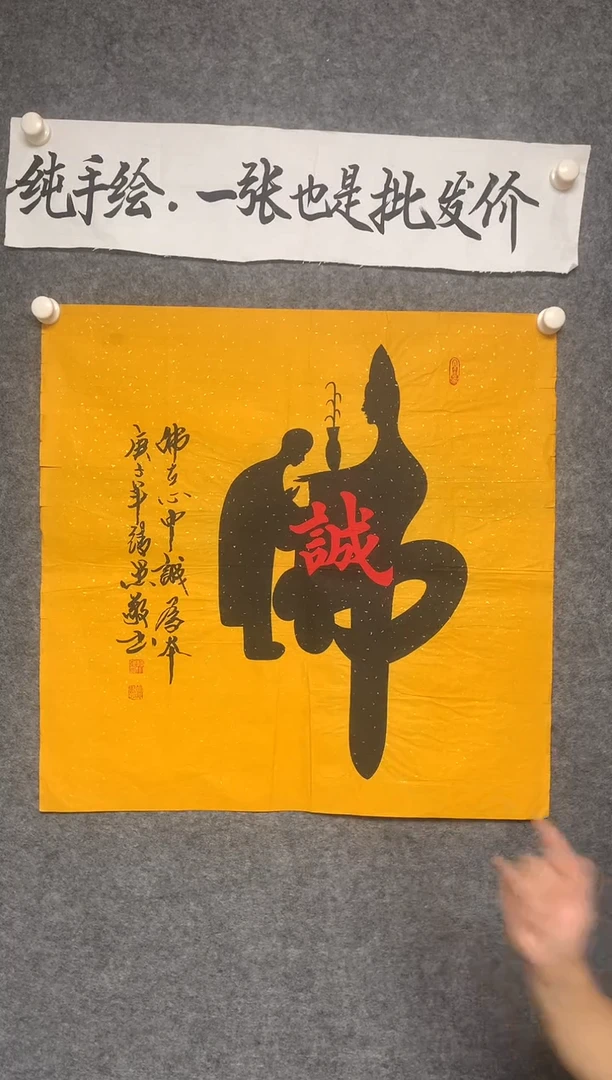 纯手绘.一张也是批发价
佛
誠
佛在心中誠為本
庚子年靖敬书